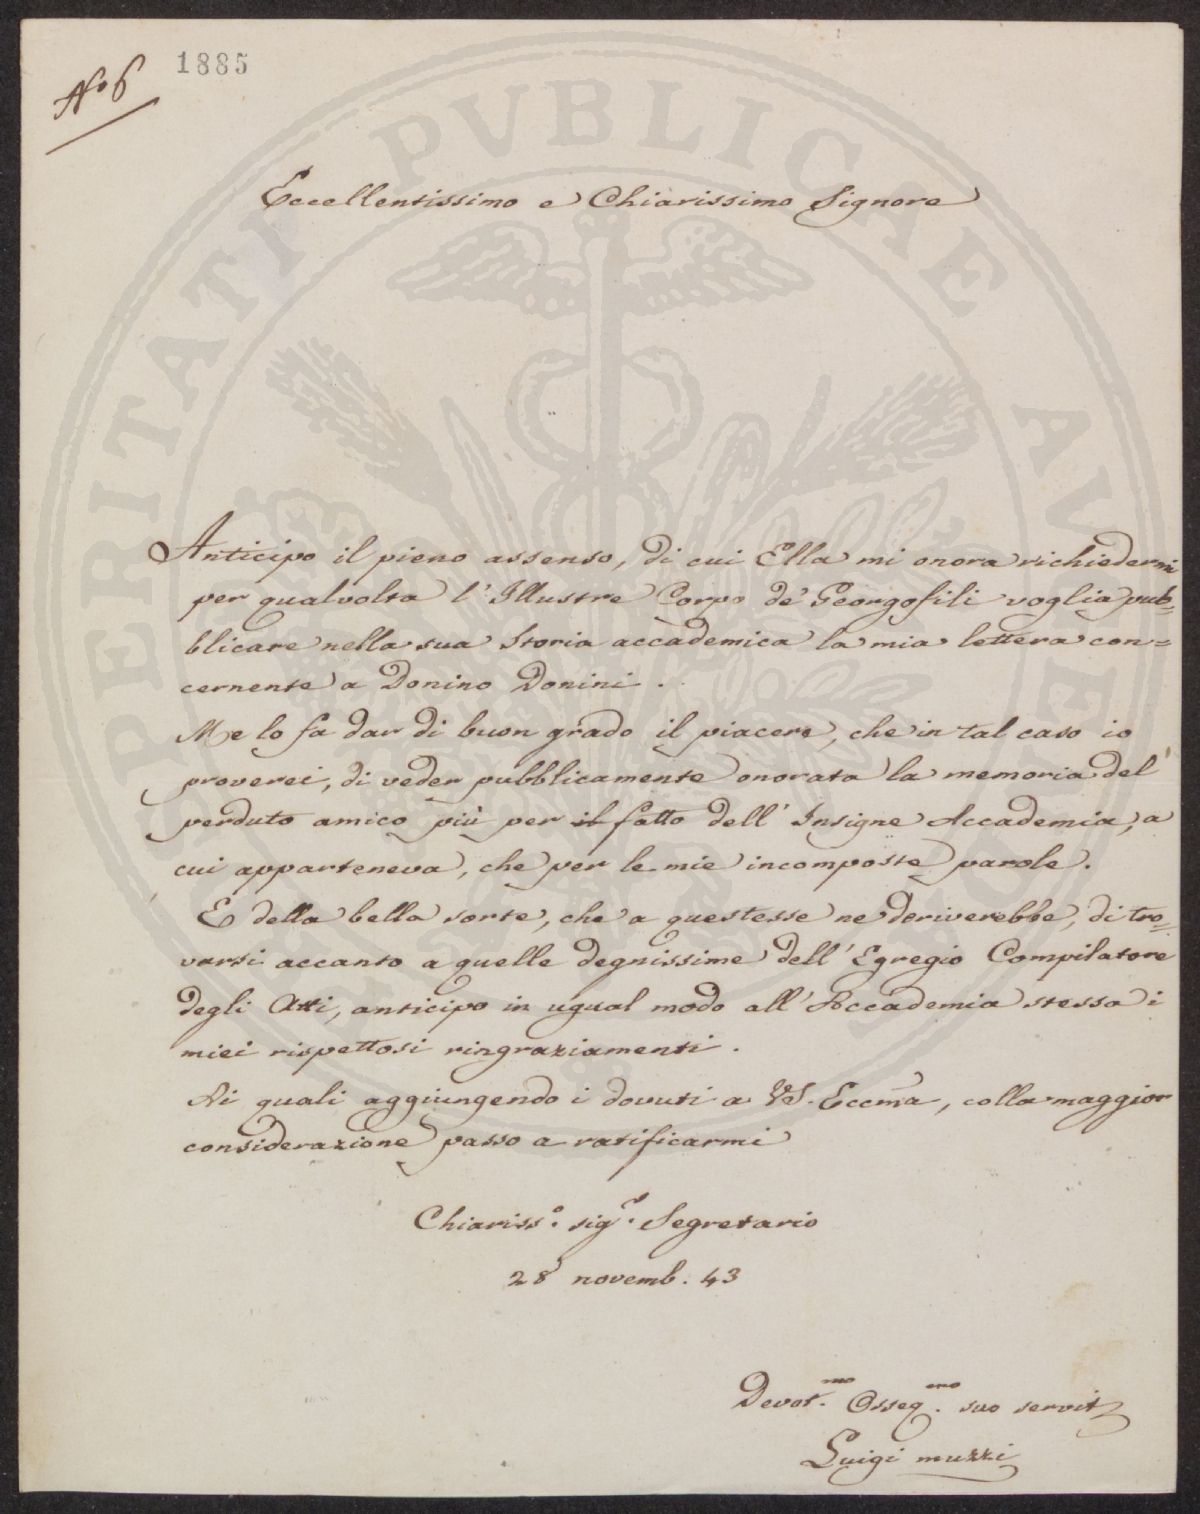 1885
N.º 6
PROSPERITATI PVBLICAE AVGENDAE
Eccellentissimo e Chiarissimo Signore
Anticipo il pieno assenso, di cui Ella mi onora richiedermi
per qualvolta l'Illustre Corpo de' Georgofili voglia pub=
blicare nella sua Storia accademica la mia lettera con=
cernente a Donino Donini.
Me lo fa dar di buon grado il piacere, che in tal caso io
proverei, di veder pubblicamente onorata la memoria del
perduto amico più per il fatto dell'Insigne Accademia, a
cui apparteneva, che per le mie incomposte parole.
E della bella sorte, che a questesse ne deriverebbe, di tro=
varsi accanto a quelle degnissime dell'Egregio Compilatore
degli Atti, anticipo in ugual modo all'Accademia stessa i
miei rispettosi ringraziamenti.
Ai quali aggiungendo i dovuti a VS. Eccma, colla maggior
considerazione passo a ratificarmi
Chiariss.º sig.r Segretario
28 novemb. 43
Devot.mo Osseq.mo suo servit
Luigi muzzi